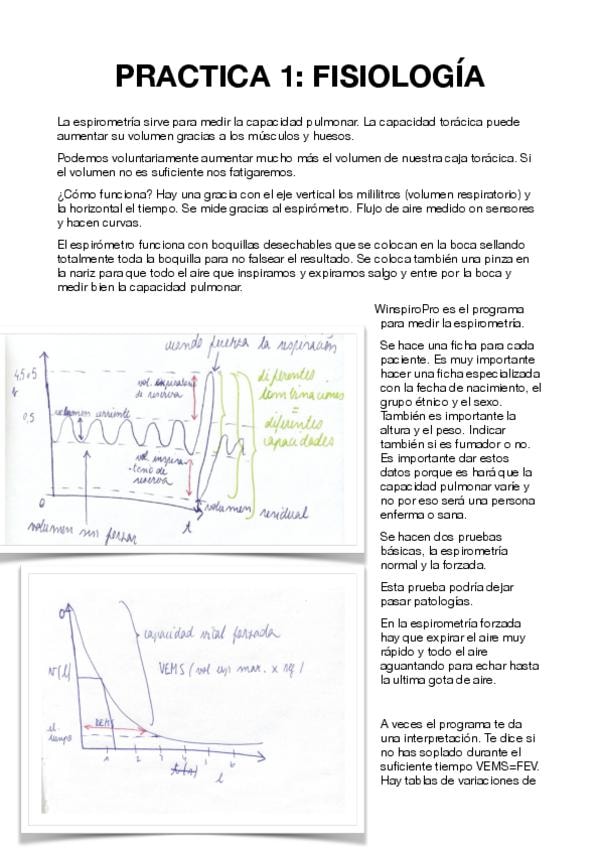 PRACTICA 1: FISIOLOGÍA
La espirometría sirve para medir la capacidad pulmonar. La capacidad torácica puede
aumentar su volumen gracias a los músculos y huesos.
Podemos voluntariamente aumentar mucho más el volumen de nuestra caja torácica. Si
el volumen no es suficiente nos fatigaremos.
¿Cómo funciona? Hay una gracia con el eje vertical los mililitros (volumen respiratorio) y
la horizontal el tiempo. Se mide gracias al espirómetro. Flujo de aire medido on sensores
y hacen curvas.
El espirómetro funciona con boquillas desechables que se colocan en la boca sellando
totalmente toda la boquilla para no falsear el resultado. Se coloca también una pinza en
la nariz para que todo el aire que inspiramos y expiramos salgo y entre por la boca y
medir bien la capacidad pulmonar.
WinspiroPro es el programa
para medir la espirometría.
Se hace una ficha para cada
paciente. Es muy importante
hacer una ficha especializada
con la fecha de nacimiento, el
grupo étnico y el sexo.
También es importante la
altura y el peso. Indicar
también si es fumador o no.
Es importante dar estos
datos porque es hará que la
capacidad pulmonar varíe y
no por eso será una persona
enferma o sana.
Se hacen dos pruebas
básicas, la espirometría
normal y la forzada.
Esta prueba podría dejar
pasar patologías.
En la espirometría forzada
hay que expirar el aire muy
rápido y todo el aire
aguantando para echar hasta
la ultima gota de aire.
A veces el programa te da
una interpretación. Te dice si
no has soplado durante el
suficiente tiempo VEMS=FEV.
Hay tablas de variaciones de
fuerza la respiración
0,5
volumen corriente
de reserva
diferentes
=
diferentes
capacidades
reserva
0
t
volumen residual
volumen sin forzar
capacidad vital forzada
VEMS
tiempo
1 2 3 4 5 6